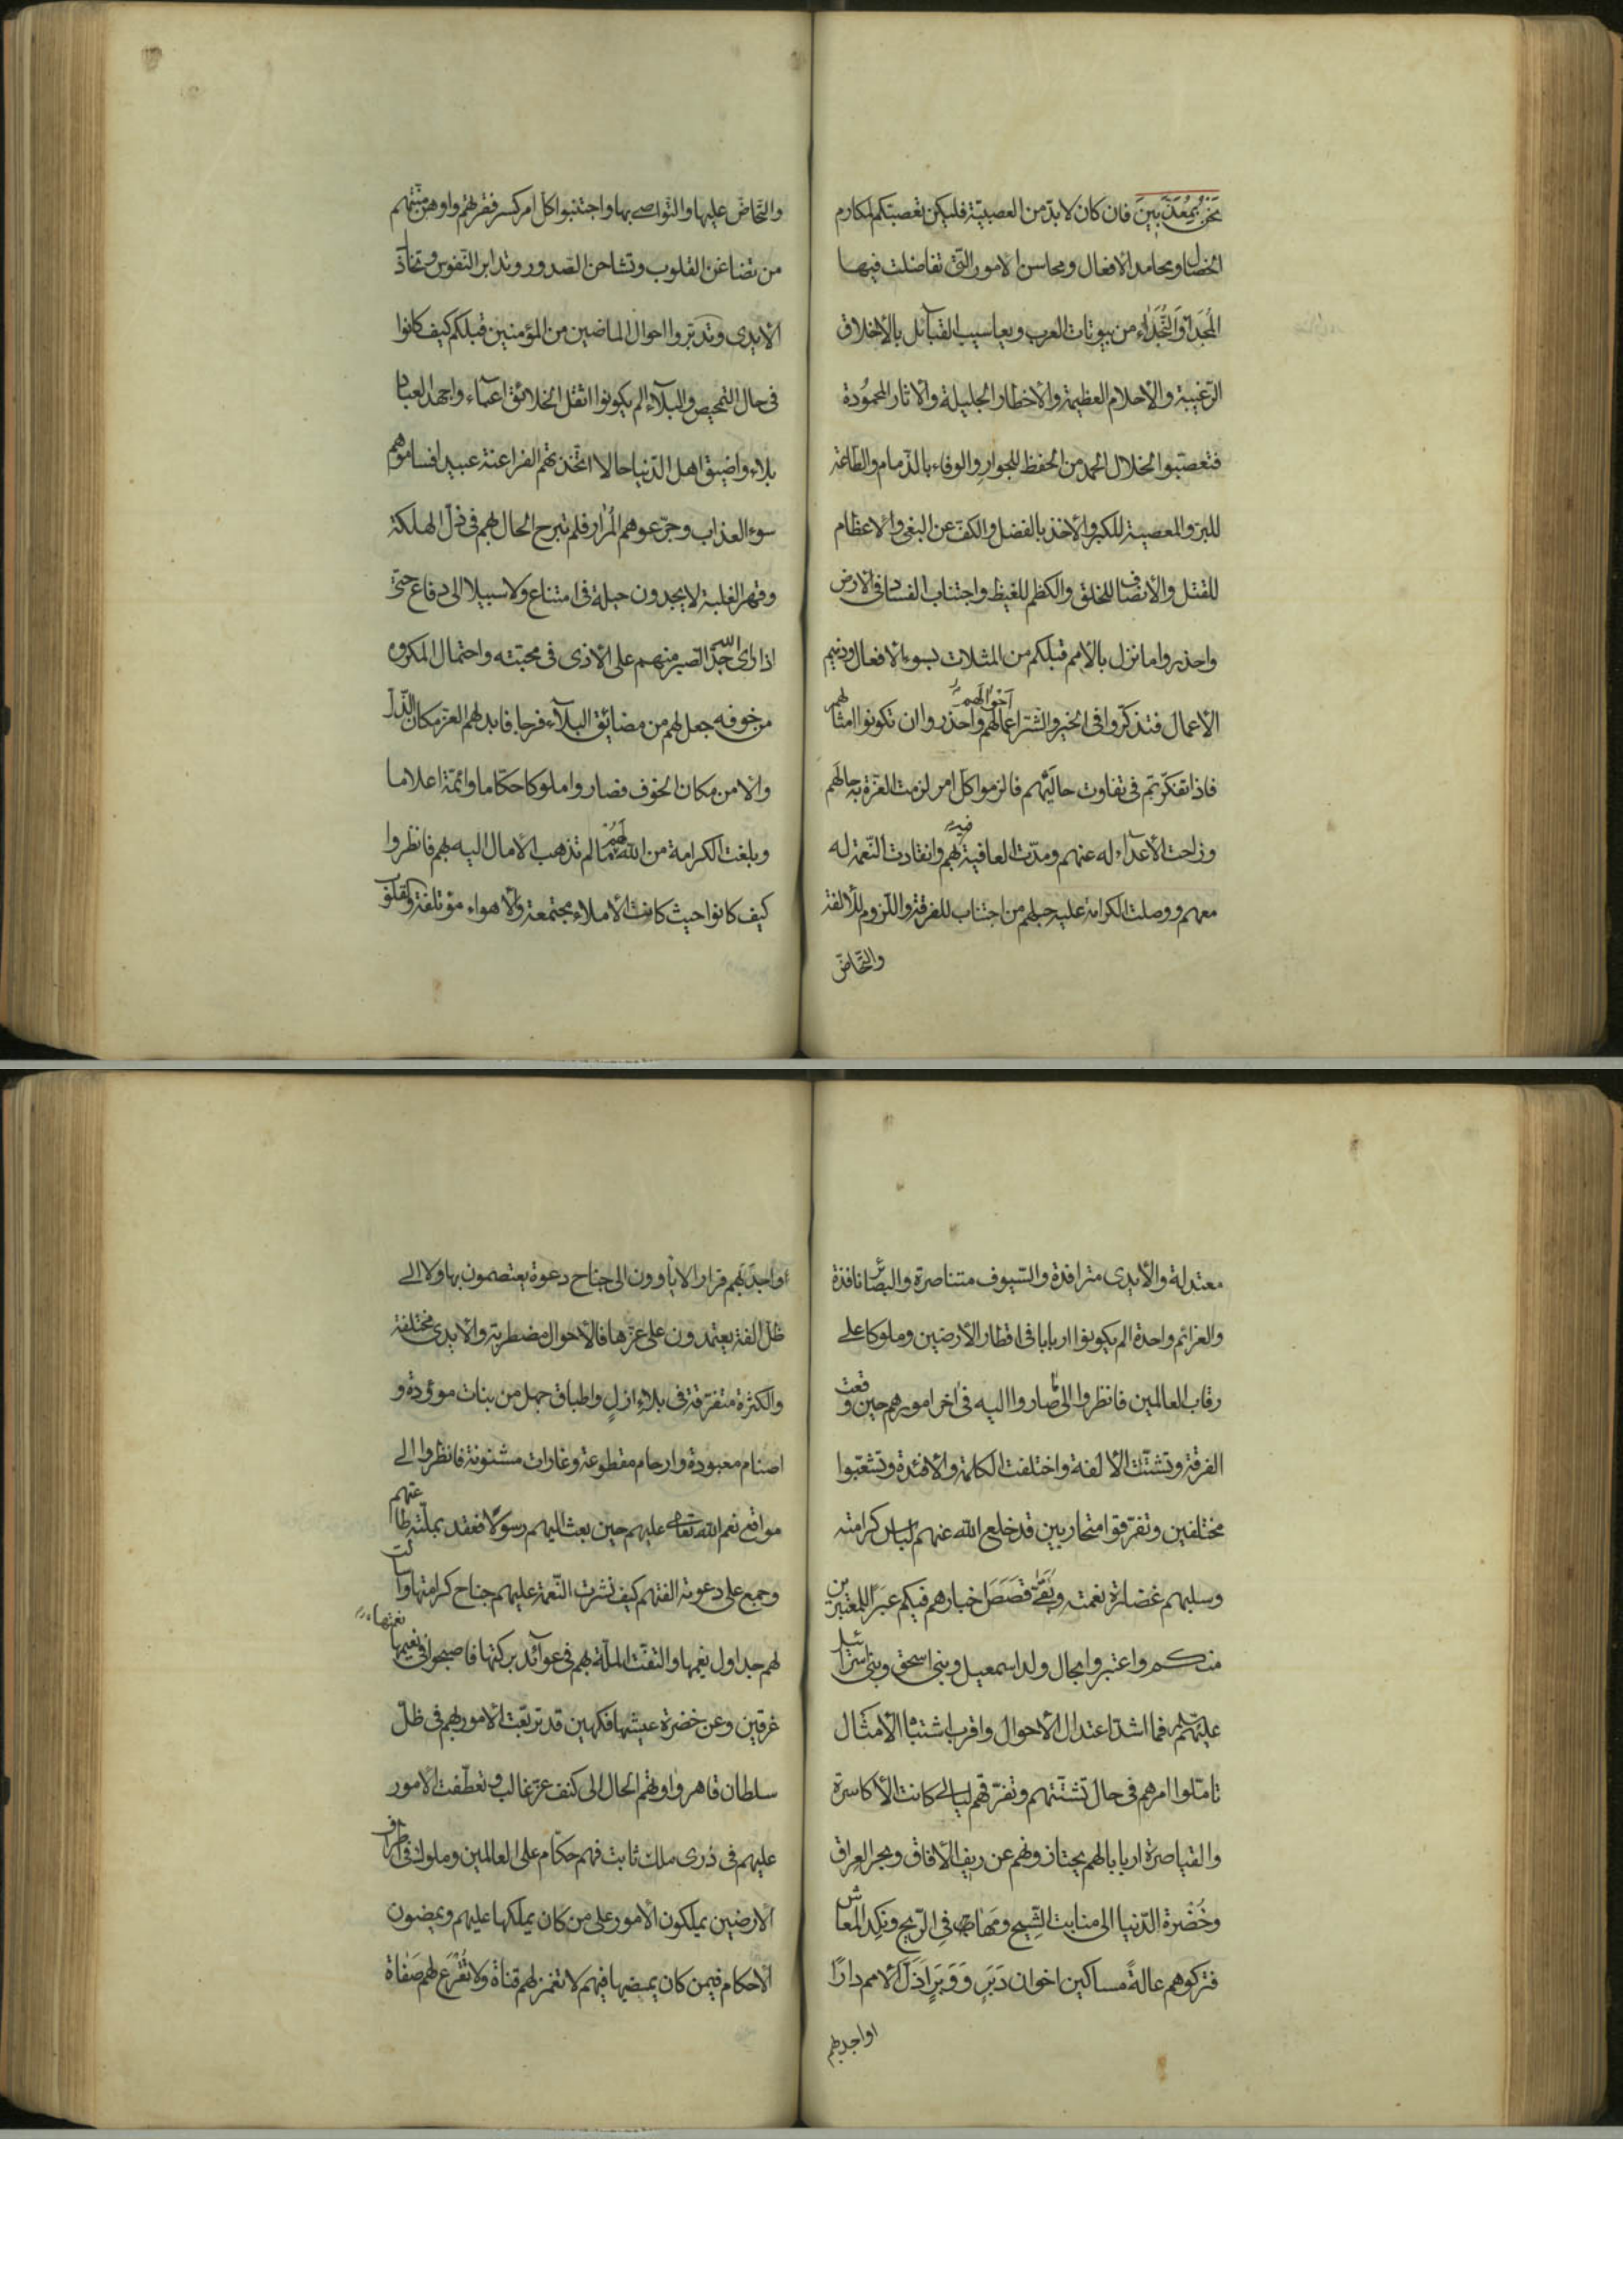 نَحْنُ بِمُعَذَّبِينَ فان كان لابدّ من العصبيّة فليكن تعصبّكم لمكارم
الخصال ومحامد الافعال ومحاسن الامور التى تفاضلت فيها
المُجَدَاء وَالنُّجَدَاء من بيوتات العرب ويعاسيب القبآئل بالأخلاق
الرّغيبة والأحلام العظيمة والأخطار الجليلة والاثار المحمُودة
فتعصّبوا لخلال الحمد من الحفظ للجوارِ والوفاء بالذّمام والطّاعة
للبرّ والمعصية للكبر والأخذ بالفضل والكفّ عن البغى والاعظام
للقتل والأنصاف للخلق والكظم للغيظ واجتناب الفساد فى الارض
واحذروا ما نزل بالأمم قبلكم من المثلات بسوء الافعال وذميم
الأعمال فتذكّروا فى الخير والشّرّ اعمالهم واحذروا ان تكونوا امثالهم
أحْوالَهم
فاذا تفكّرتم فى تفاوت حاليْهم فالزموا كلّ امر لزمت العزّة به حالَهم
وزاحت الأعدآء له عنهم ومدّت العافية بهم وانقادت النّعمة له
فيه
معهم ووصلت الكرامة عليه حبلهم من اجتناب للفرقة واللّزوم للألفة
والتّحاضّ
والتّحاضّ عليها والتّواصى بها واجتنبوا كلّ امر كسر فقرتهم واوهن منّتهم
من تضاغن القلوب وتشاحن الصّدور وتدابر النّفوس وتخاذل
الأيدى وتدبّروا احوال الماضين من المؤمنين قبلكم كيف كانوا
فى حال التمحيص والبلآء الم يكونوا اثقل الخلائق اعبآء واجهد العباد
بلاء واضيق اهل الدّنيا حالا اتّخذتهم الفراعنة عبيدا فساموهم
سوء العذاب وجرّعوهم المُرار فلم تبرح الحال بهم فى ذلّ الهلكة
وقهر الغلبة لا يجدون حيلة فى امتناع ولا سبيلا الى دفاع حتّى
اذا راى الله جِدَّ الصّبر منهم على الأذى فى محبّته واحتمال المكروه
من خوفه جعل لهم من مضائق البلآء فرجا فابدلهم العزّ مكان الذّلّ
والأمن مكان الخوف فصاروا ملوكا حكّاما وائمّة اعلاما
وبلغت الكرامة من الله لهم ما لم تذهب الأمال اليه بهم فانظروا
كيف كانوا حيث كانت الأملاء مجتمعة والأهواء مؤتلفة والقلوب
معتدلة والأيدى مترافدة والسّيوف متناصرة والبصائر نافذة
والعزائم واحدة الم يكونوا اربابا فى اقطار الأرضين وملوكا على
رقاب العالمين فانظروا الى ما صاروا اليه فى اخر امورهم حين وقعت
الفرقة وتشتّت الألفة واختلفت الكلمة والأفئدة وتشعّبوا
مختلفين وتفرّقوا متحاربين قد خلع الله عنهم لباس كرامته
وسلبهم غضارة نعمته وبَقَّى قَصَصَ اخبارهم فيكم عِبَرًا للمعتبرين
منكم واعتبروا بحال ولد اسمعيل وبنى اسحق وبنى اسرائيل
عليهم فما اشدّ اعتدال الأحوال واقرب اشتباه الأمثال
تامّلوا امرهم فى حال تشتّتهم وتفرّقهم ليالى كانت الأكاسرة
والقياصرة اربابا لهم يحتازونهم عن ريف الأفاق وبحر العراق
وخُضْرة الدّنيا الى منابت الشّيح ومَهَافِى الرّيح ونكِد المعاش
فتركوهم عالةً مساكين اخوان دَبَرٍ وَوَبَرٍ اَذَلَّ الأمم دارًا
او اجدبهم
او اجدَبَهم قرارا لا يأوون الى جناح دعوة يعتصمون بها ولا الى
ظلّ الفة يعتمدون على عزّها فالأحوال مضطربة والأيدى مختلفة
والكثرة متفرّقة فى بلاء ازلٍ واطباق جهل من بنات موؤدة و
اصنام معبودة وارحام مقطوعة وغارات مشنونة فانظروا الى
مواقع نعم الله تعالى عليهم حين بعث اليهم رسولًا فعقد بملّته طاعتهم
وجمع على دعوته الفتهم كيف نشرت النّعمة عليهم جناح كرامتها واسالت
لهم جداول نعيمها والتفّت الملّة بهم فى عوآئد بركتها فاصبحوا فى نعيمها
نعمتها
غرقين وعن خضرة عيشها فكهين قد تربّعت الأمور بهم فى ظلّ
سلطان قاهر واوتهم الحال الى كنف عزّ غالب وتعطّفت الامور
عليهم فى ذرى ملك ثابت فهم حكّام على العالمين وملوك فى اطراف
الارضين يملكون الأمور على من كان يملكها عليهم ويمضون
الأحكام فيمن كان يمضيها فيهم لا تغمز لهم قناة ولا تُقْرَع لهم صَفَاة